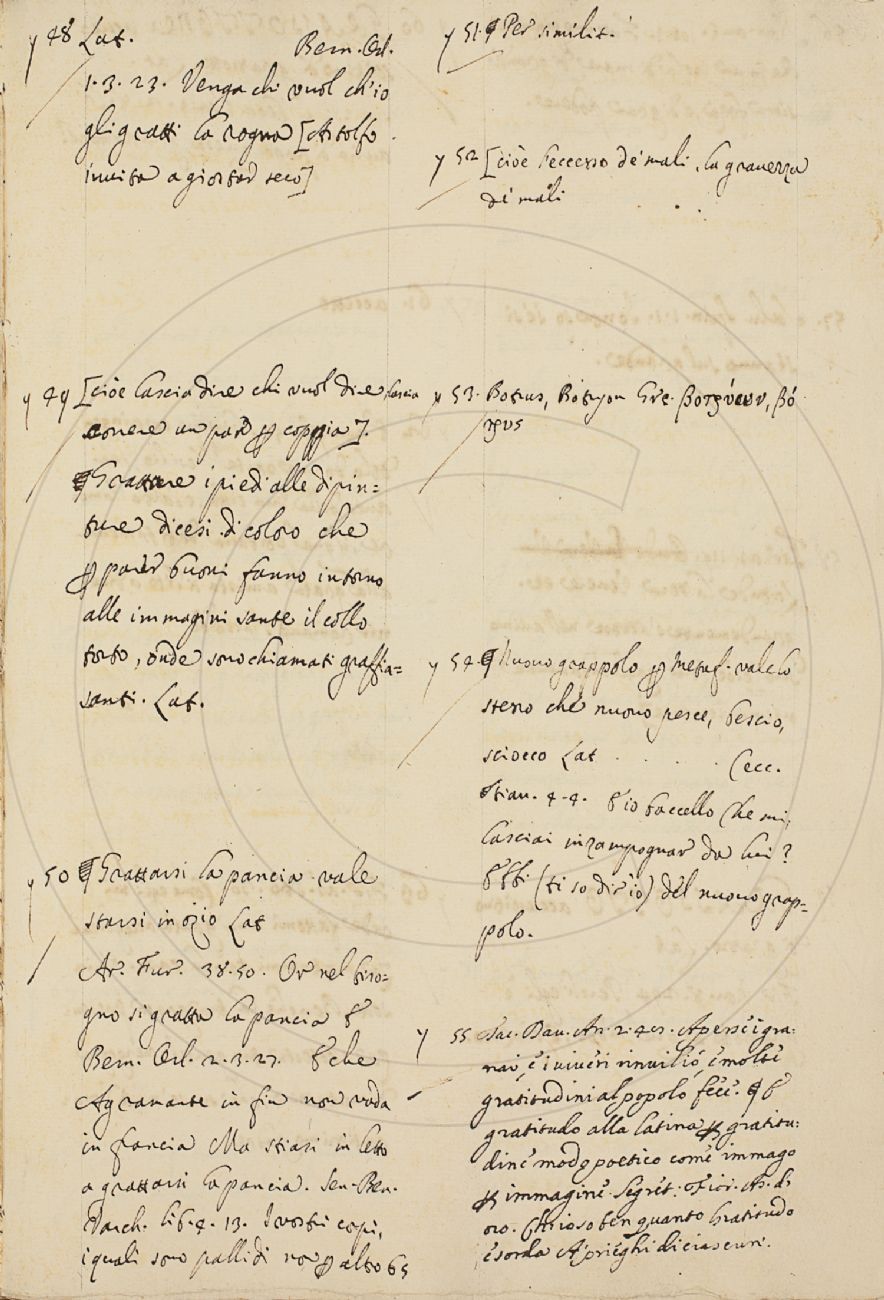 y 48 Lat. Bern. Orl.
1. 3. 23. Venga chi vuol ch'io
gli gratti la rogna [Astolfo
invita a giostrar seco]
y 49 [cioè lascia dire chi vuol dire, lascia
correre un par ꝑ coppia].
¶ Grattare i piedi alle dipin=
ture dicesi di coloro che
ꝑ parer buoni fanno intorno
alle immagini sante il collo
torto, onde sono chiamati graffia=
santi. Lat.
y 50 ¶ Grattarsi la pancia vale
starsi in ozio Lat
Ar. Fur. 38. 50. Or nel biso=
gno si gratta la pancia E
Bern. Orl. 2. 3. 27. E che
Agramante in fin non vada
in Francia Ma stiasi in letto
a grattarsi la pancia. Sen. Ben.
Varch. lib. 4. 13. I vostri corpi,
i quali sono pallidi non ꝑ altro 65
y 51. ¶ Per similit.
y 52 [cioè l'eccesso de' mali, la gravezza
de' mali
y 53. Botrus, Botryon Gre. βοτρύων, βό
τρυς
y 54. ¶ Nuovo grappolo ꝑ metaf. vale lo
stesso che nuovo pesce, bescio,
sciocco Lat . . . . . Cecc.
Stiav. 4. 4. E io baccello che mi
lasciai inzampognar da lui?
Ebbi (ti so dir io) del nuovo grap=
polo.
y 55 Tac. Dav. An. 2. Aperse i gra:
nai, e i viveri rinviliò, e molte
gratitudini al popolo fece. ¶ E
gratitudo alla latina ꝑ gratitu:
dine modo poetico come immago
ꝑ immagine. Segret. Fior. As. d'
oro. Chrioso ben quanto Gratitudo
è sorda A' prieghi di ciascun.